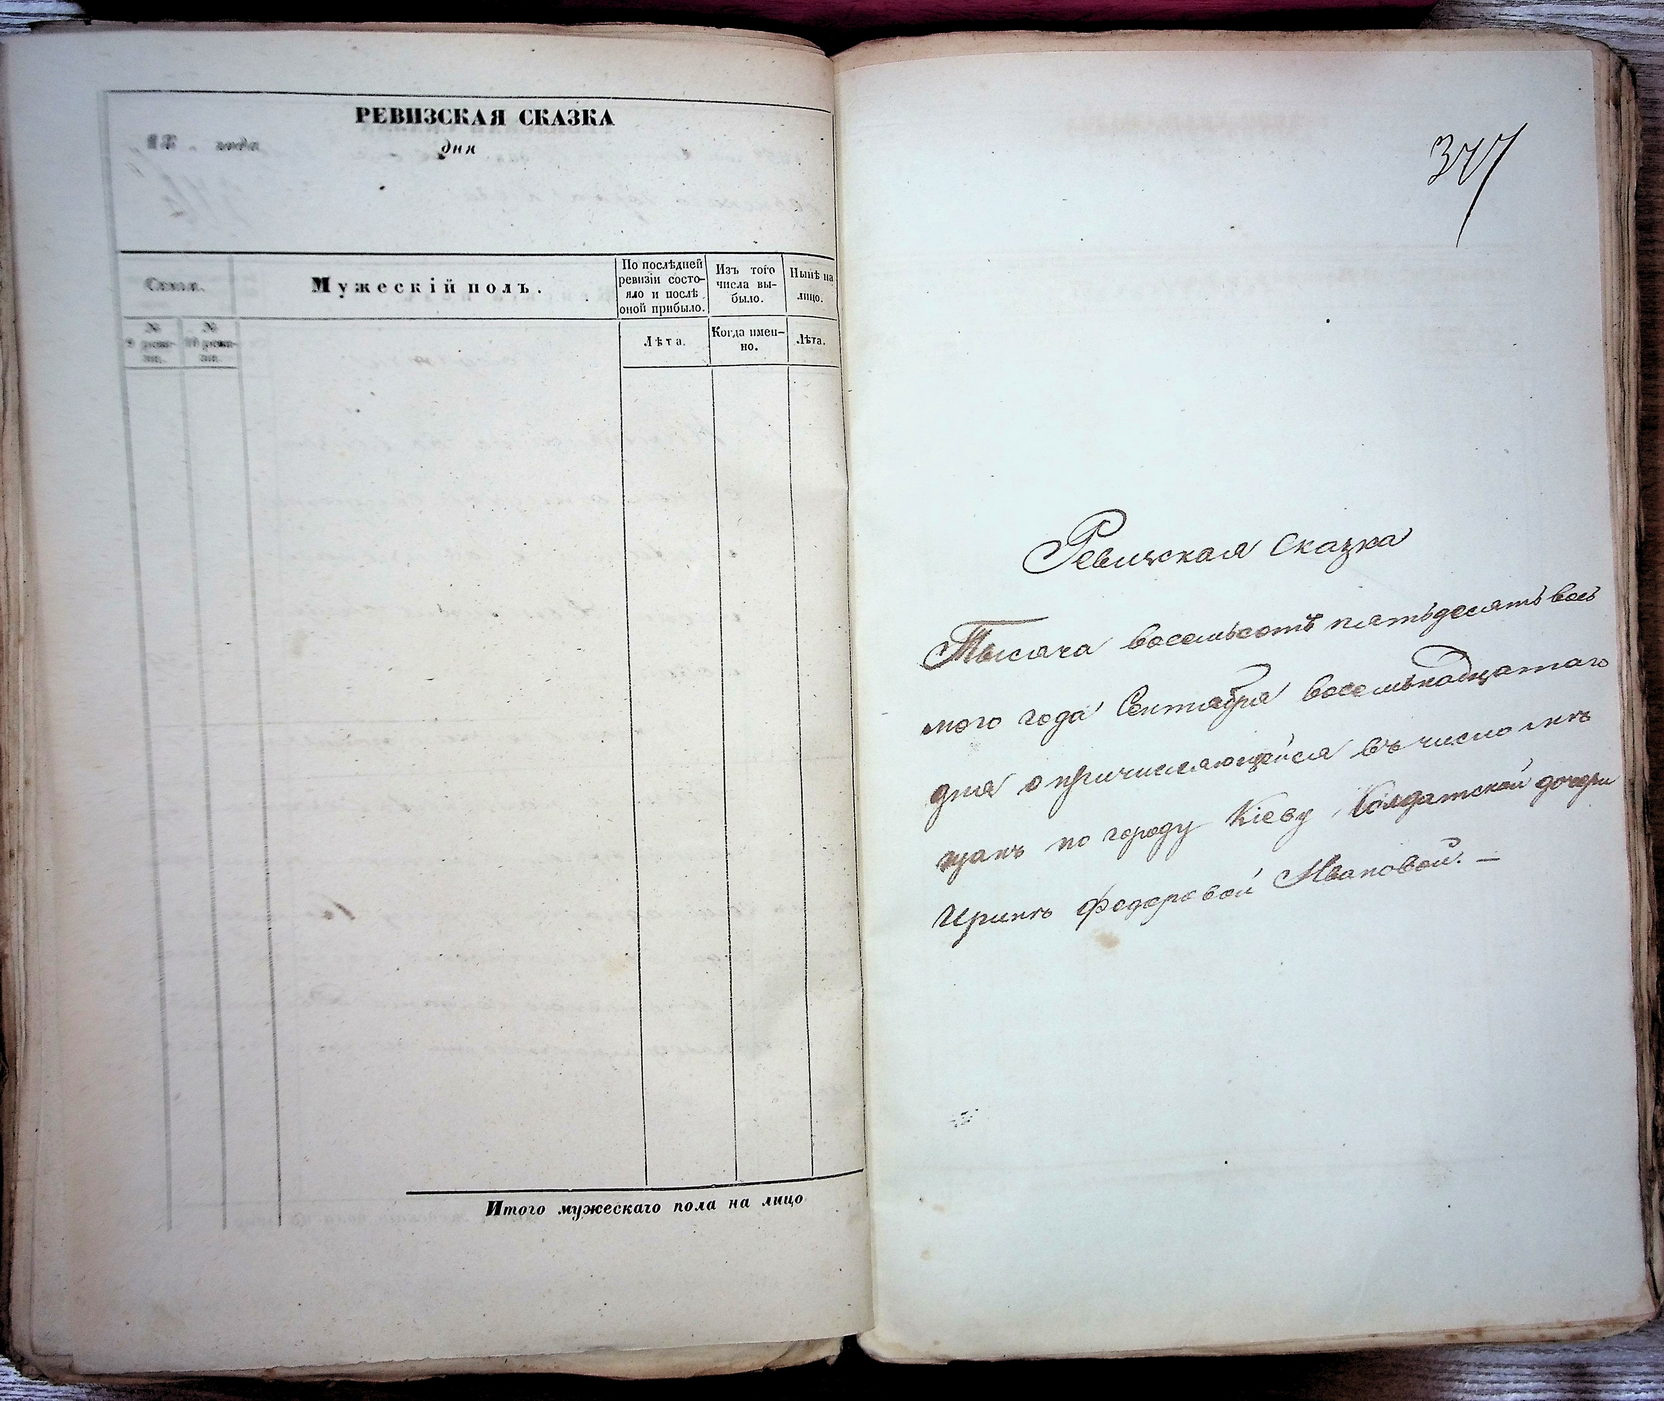 РЕВИЗСКАЯ СКАЗКА
18 года дня
Семьи.
Мужескій полъ.
По послѣдней ревизіи состояло и послѣ оной прибыло.
Изъ того числа выбыло.
Нынѣ на лицо.
№ 9 ревизіи.
№ 10 ревизіи.
Лѣта.
Когда именно.
Лѣта.
Итого мужескаго пола на лицо
377
Ревизская сказка
Тысяча восемьсотъ пятьдесятъ вось
мого года Сентября восемьнадцатаго
дня о причисляющейся въ число мѣ
щанъ по городу Кіеву Солдатской дочери
Иринѣ Федоровой Ивановой. —